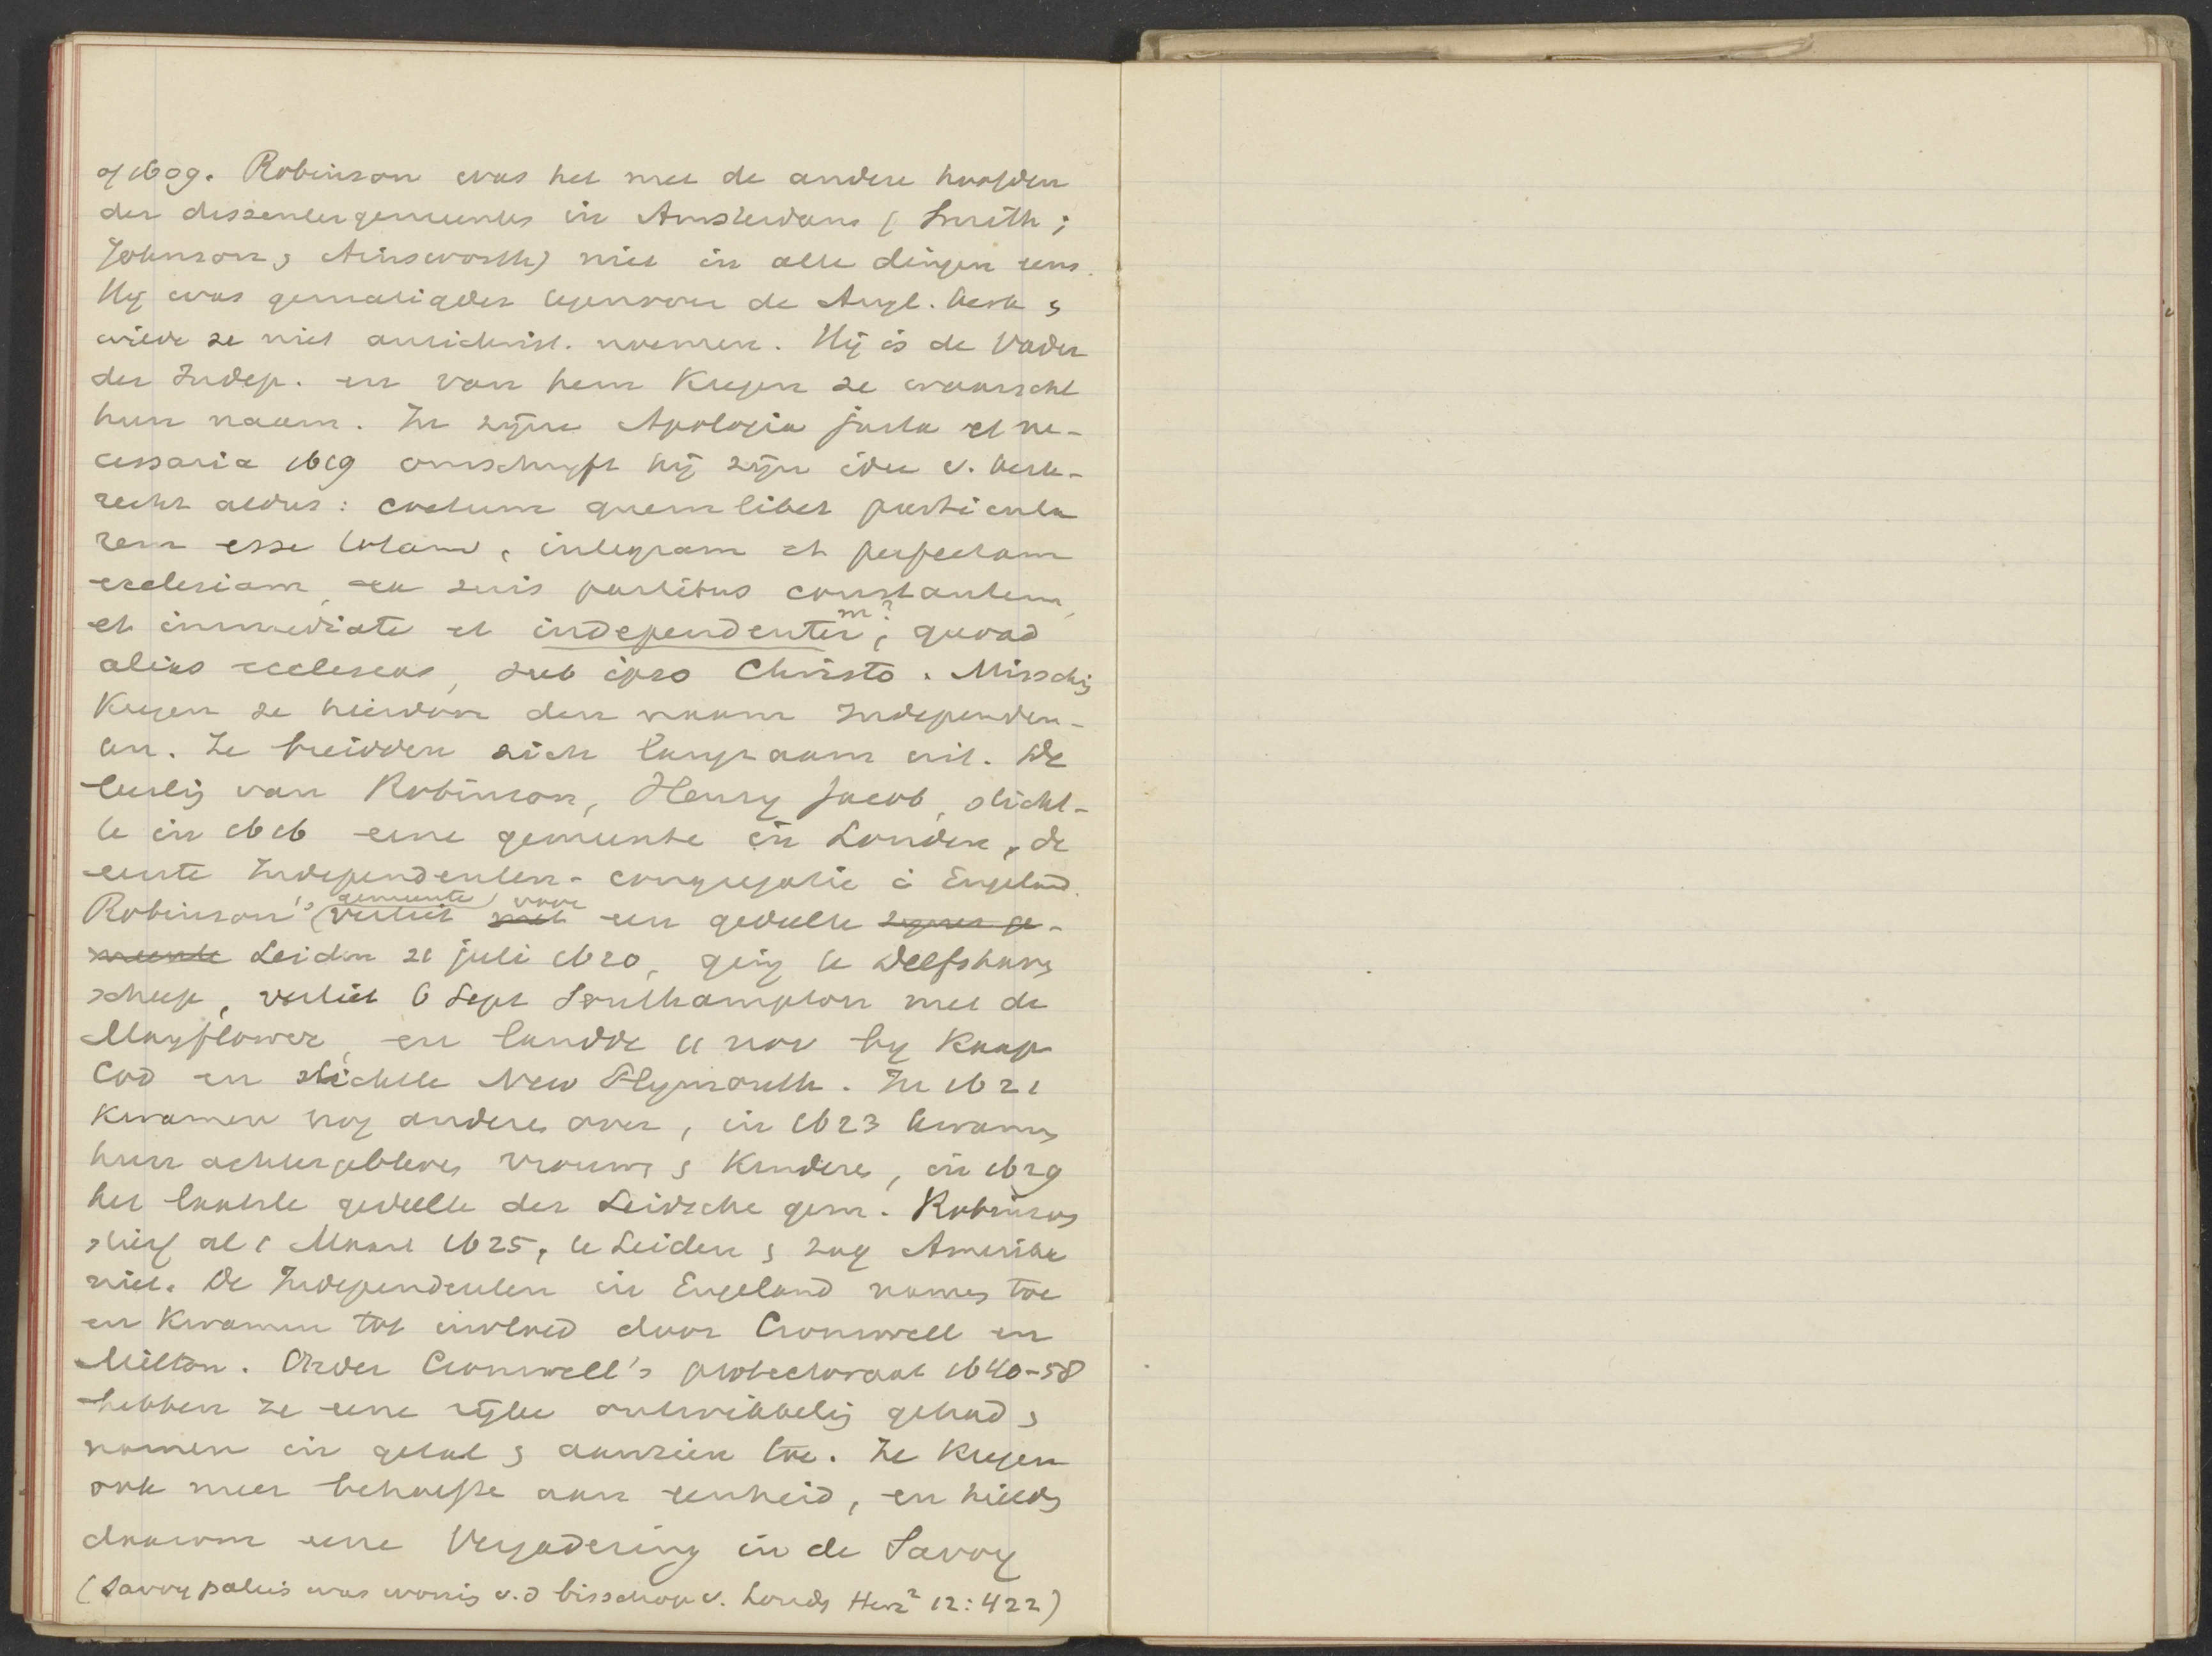 of 1609. Robinson was het met de andere hoofden
der dissentergemeentes in Amsterdam (Smith,
Johnson, Ainsworth) niet in alle dingen eens.
Hij was gematigder tegenover de Angl. kerk &
wilde ze niet antichrist. noemen. Hij is de Vader
der Indep. en van hem kregen ze waarschl
hun naam. In zijne Apologia justa et ne-
cessaria 1619 omschrijft hij zijn idee v. kerk-
recht aldus: coetum quemlibet particula
rem esse totam, integram et perfectam
ecclesiam, ex suis partibus constantem,
et immediate et independenter, m? quoad
alias ecclesias, sub ipso Christo. Missch
kregen ze hierdoor den naam Independen-
ten. Ze breidden zich langzaam uit. De
leerlig van Robinson, Henry Jacob, sticht-
te in 1616 eene gemeente in Londen, de
eerste Independenten-congregatie i Engeland.
Robinson's gemeente verliet met voor een gedeelte zijner ge-
meente Leiden 21 juli 1620, ging te Delfshaven
scheep, verliet 6 Sept Southampton met de
Mayflower, en landde 11 nov by Kaap
Cod en stichtte New Plymouth. In 1621
kwamen nog andere over, in 1623 kwamen
hun achtergebleven vrouwen & kinderen, in 1629
het laatste gedeelte der Leidsche gem. Robinson
stierf al 1 Maart 1625, te Leiden & zag Amerika
niet. De Independenten in Engeland namen toe
en kwamen tot invloed door Cromwell en
Milton. Onder Cromwell's protectoraat 1640-58
hebben ze eene rijke ontwikkelig gehad &
namen in getal & aanzien toe. Ze kregen
ook meer behoefte aan eenheid, en hielden
daarom eene Vergadering in de Savoy
(Savoy paleis was wonig v.d bisschop v. Londen Herz² 12:422)